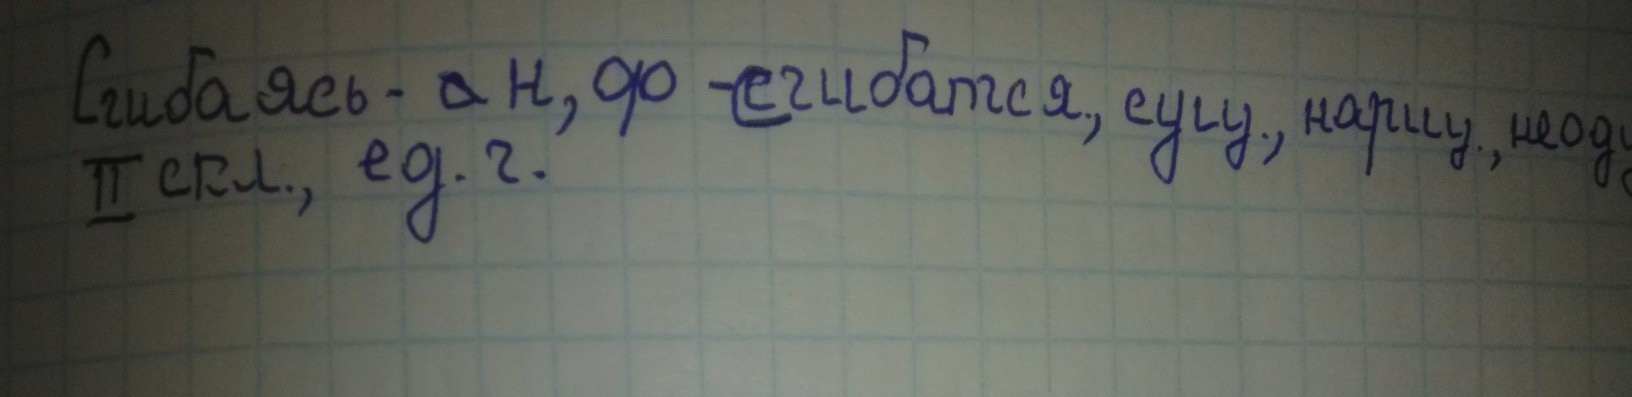 Сгибаясь - а н, фо - сгибатся, сущ., нариц., неоду
II скл., ед. ч.